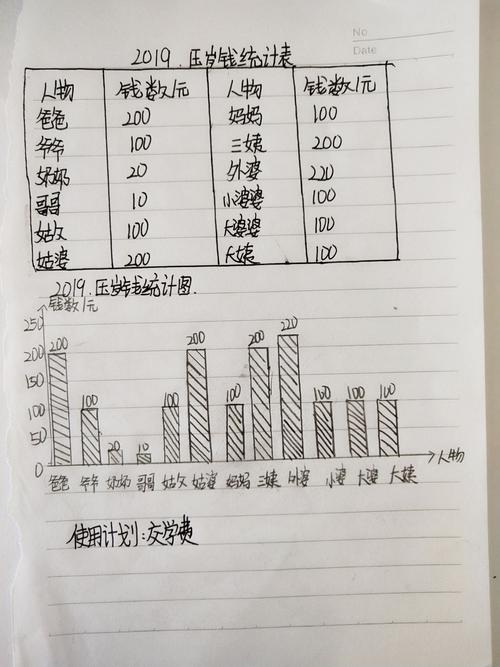 No
Date
2019.压岁钱统计表
人物 钱数/元 人物 钱数/元
爸爸 200 妈妈 100
爷爷 100 三姨 200
奶奶 20 外婆 220
哥哥 10 小婆婆 100
姑父 100 大婆婆 100
姑婆 200 大姨 100
2019.压岁钱统计图.
钱数/元
250
200
150
100
50
0
200 100 20 10 100 200 100 200 220 100 100 100
人物
爸爸 爷爷 奶奶 哥哥 姑父 姑婆 妈妈 三姨 外婆 小婆 大婆 大姨
使用计划:交学费